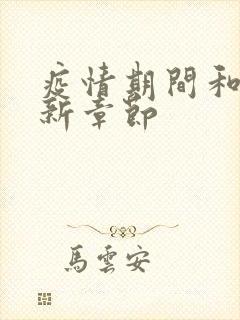 疫情期間和
新章節
馬雲安